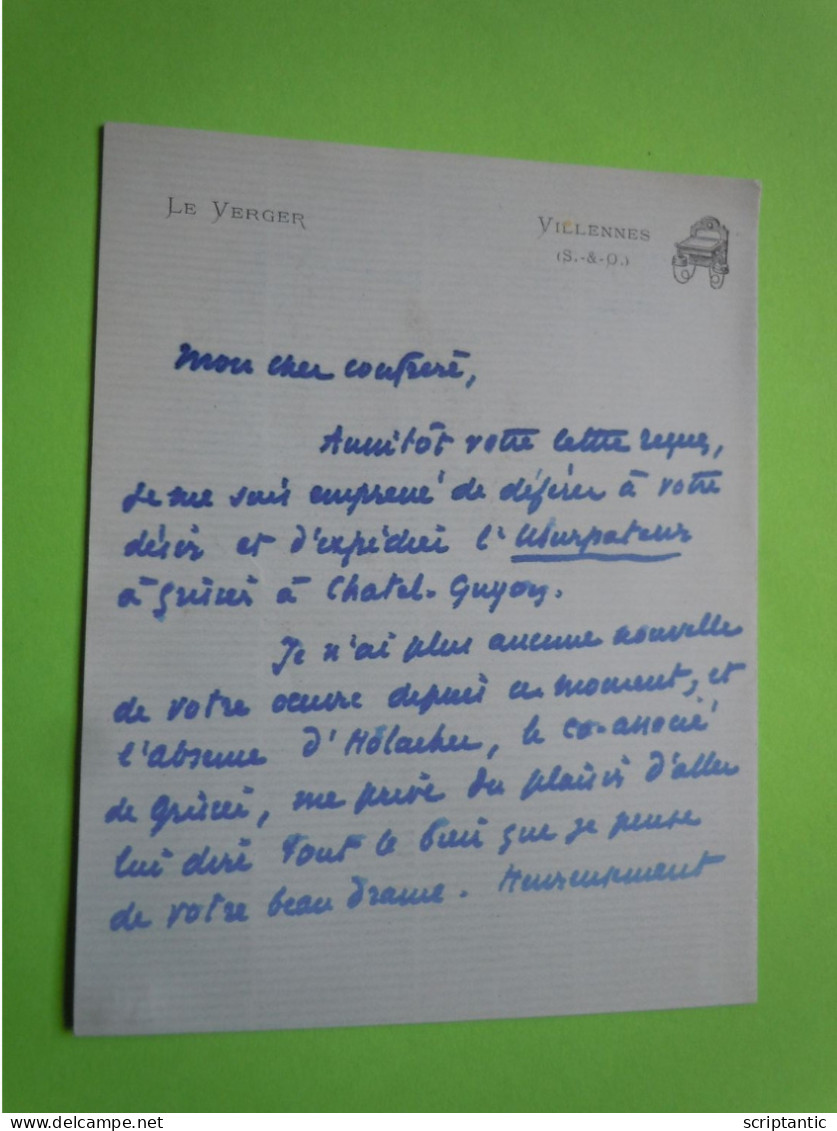 LE VERGER
VILLENNES
(S.-&-O.)
Mon cher confrère,
Aussitôt votre lettre reçue,
je me suis empressé de déférer à votre
désir et d'expédier l'Usurpateur
à à Chatel-Guyon.
Je n'ai plus aucune nouvelle
de votre oeuvre depuis ce moment, et
l'absence d', le co-associé
de, me prive du plaisir d'aller
lui dire tout le bien que je pense
de votre beau drame. Heureusement
scriptantic